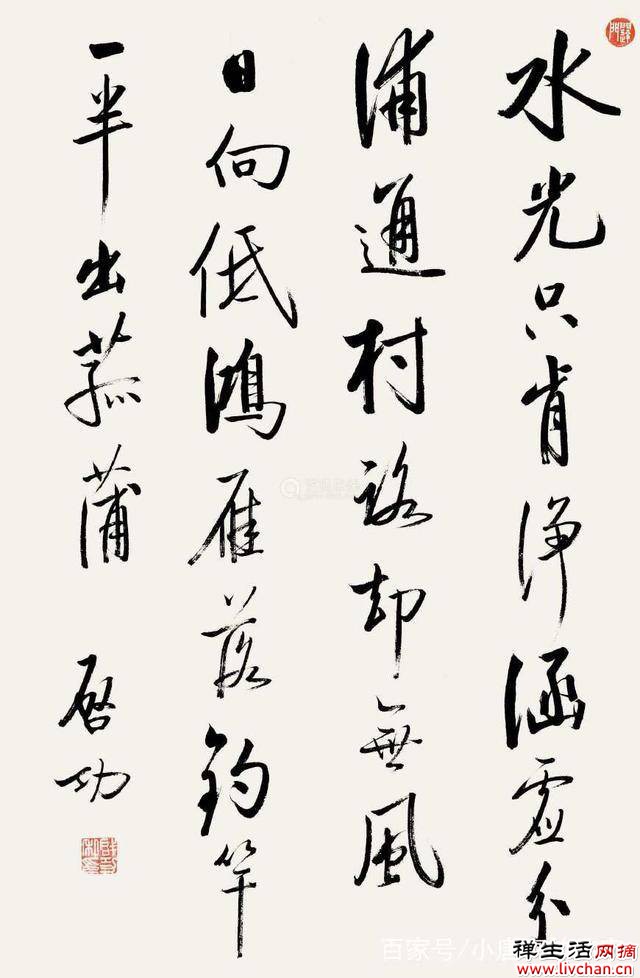 水光只肯浄涵虛分
浦通村路却無風
日向低鴻雁落釣竿
一半出菰蒲
启功
百家号/小唐
禅生活网摘
www.livchan.cn